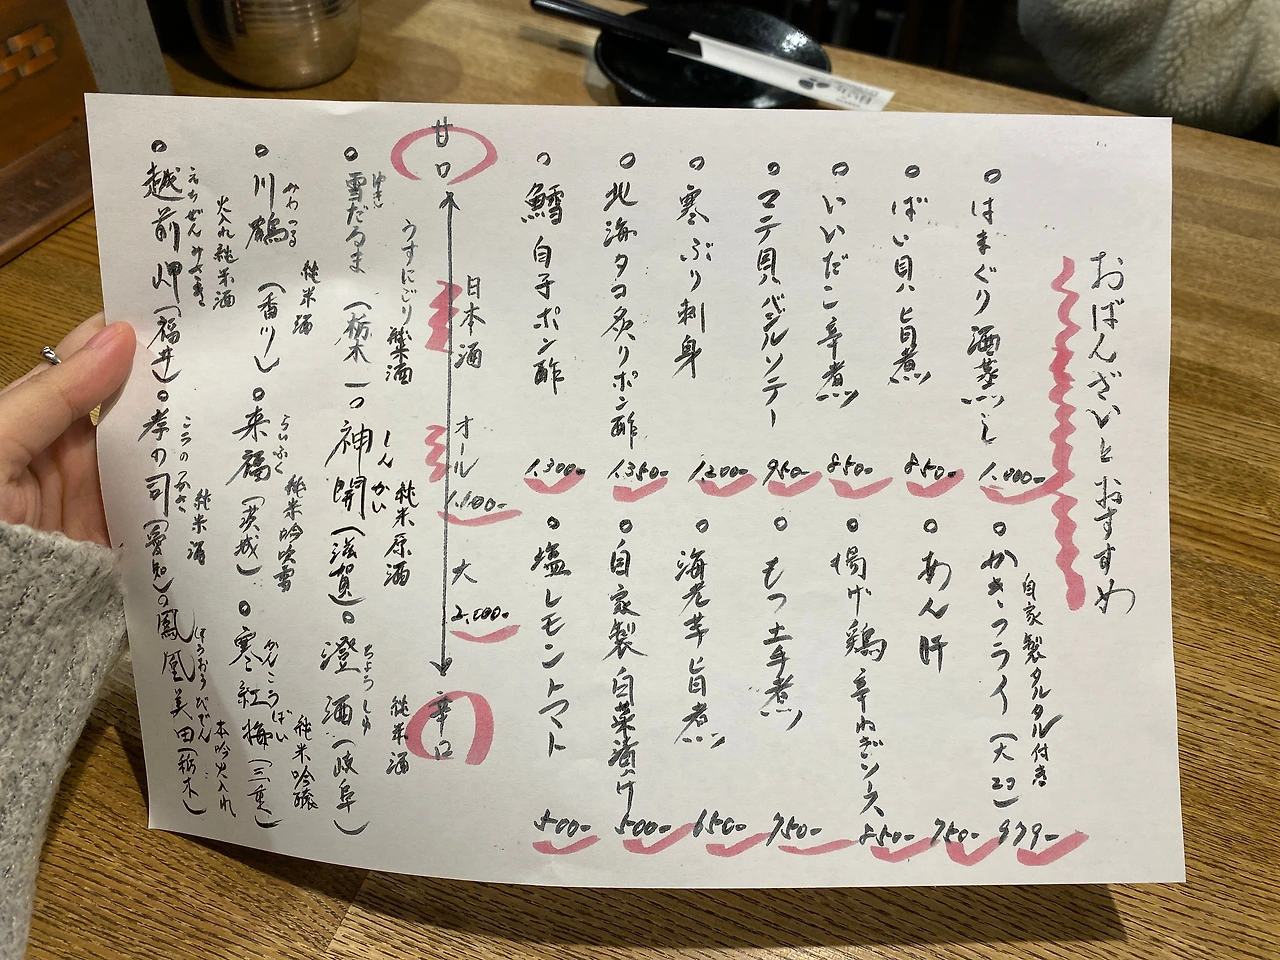 おばんざいとおすすめ
はまぐり酒蒸し 1,000-
ばい貝旨煮 850-
いいだこ辛煮 850-
マテ貝バジルソテー 950-
寒ぶり刺身 1,200-
北海タコ炙りポン酢 1,350-
鱈白子ポン酢 1,300-
自家製タルタル付き
かきフライ(大2コ)
あん肝 750-
揚げ鶏辛ねぎソース 850-
もつ土手煮 750-
海老芋旨煮 650-
自家製白菜漬け 500-
塩レモントマト 500-
日本酒 オール 1,100- 大 2,000-
甘口 辛口
うすにごり 純米酒
ゆき
雪だるま(栃木)
純米原酒
しんかい
神開(滋賀)
純米酒
ちょうしゅ
澄酒(岐阜)
純米酒
かわつる
川鶴(香川)
純米吟吹雪
らいふく
来福(茨城)
純米吟醸
かんこうばい
寒紅梅(三重)
火入れ純米酒
えちぜんみさき
越前岬(福井)
純米酒
こうのつかさ
孝の司(愛知)
本吟火入れ
ほうおうびでん
鳳凰美田(栃木)